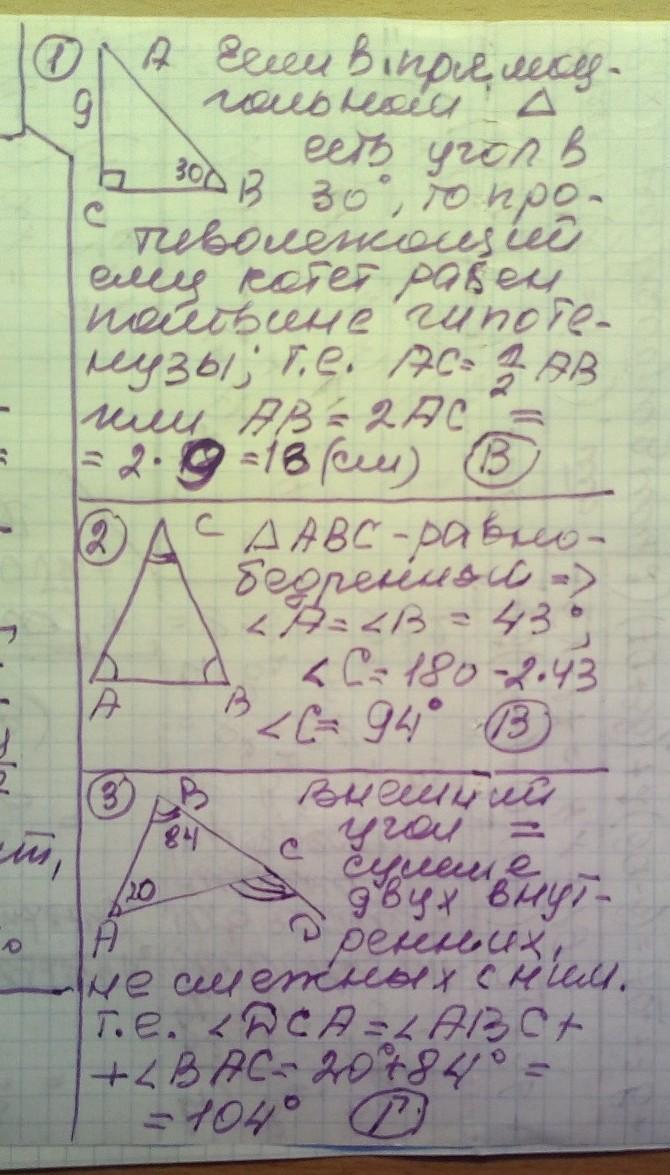 ① A Если в прямоу-
9 гольном Δ
есть угол в
30 B 30°, то про-
C тиволежащий
ему катет равен
половине гипоте-
нузы; т.е. AC = 1/2 AB
или AB = 2AC =
= 2 · 9 = 18 (см) Ⓑ
② C Δ ABC - равно-
бедренный =>
∠A = ∠B = 43°,
∠C = 180 - 2·43
A B ∠C = 94° Ⓑ
③ B Внешний
84 угол =
C сумме
20 двух внут-
A D ренних,
не смежных с ним.
т.е. ∠DCA = ∠ABC +
+ ∠BAC = 20° + 84° =
= 104° Ⓖ